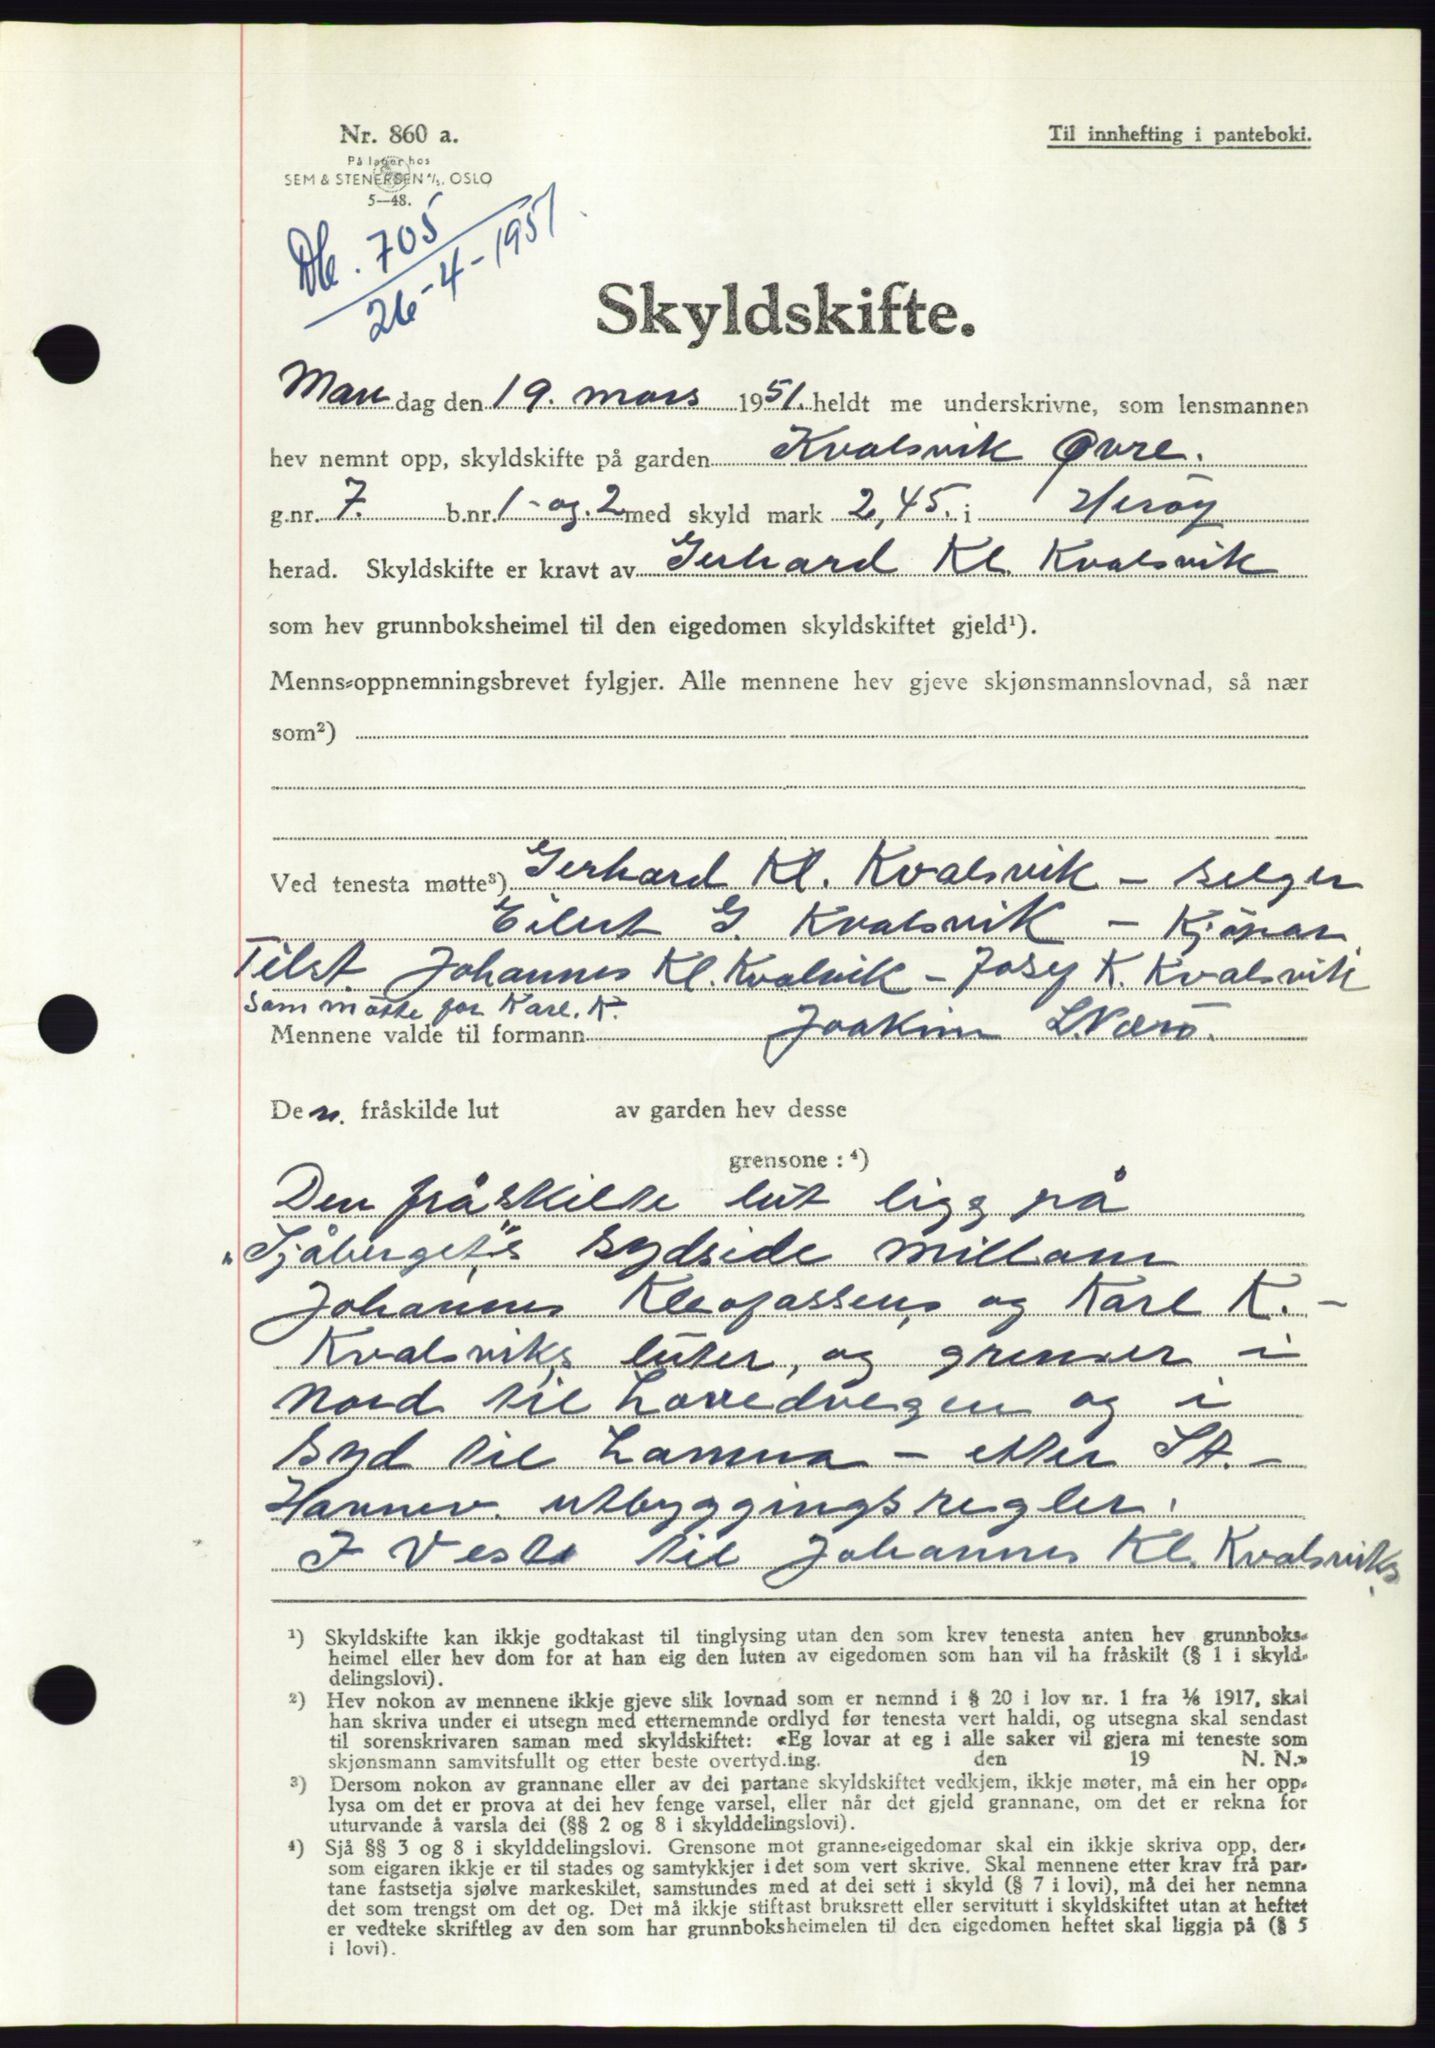 Nr. 860 a.
Til innhefting i panteboki.
På lager hos
SEM & STENERSEN A/S, OSLO
5—48.
Db. 705
26-4-1951
Skyldskifte.
Man dag den 19. mars 1951. heldt me underskrivne, som lensmannen
hev nemnt opp, skyldskifte på garden Kvalsvik Øvre.
g.nr. 7. b.nr. 1- og. 2 med skyld mark 2,45. i Herøy
herad. Skyldskifte er kravt av Gerhard Kl. Kvalsvik
som hev grunnboksheimel til den eigedomen skyldskiftet gjeld¹).
Menns-oppnemningsbrevet fylgjer. Alle mennene hev gjeve skjønsmannslovnad, så nær
som²)
Ved tenesta møtte³) Gerhard Kl. Kvalsvik – selger
Eilert G. Kvalsvik – Kjöpar
Tilst. Johannes Kl. Kvalsvik – Josef K. Kvalsvik
som møtte for Karl. K.
Mennene valde til formann Joakim L. Nærö.
Den. fråskilde lut av garden hev desse
grensone : ⁴)
Den fråskilte lut ligg på
„Sjåberget"s sydside millom
Johannes Kleofassens, og Karl K. –
Kvalsviks luter, og grenser i
nord til hovedvegen og i
syd til hamna – etter St. –
Hannev. utbyggingsregler.
I Vest til Johannes Kl. Kvalsviks
¹) Skyldskifte kan ikkje godtakast til tinglysing utan den som krev tenesta anten hev grunnboks-
heimel eller hev dom for at han eig den luten av eigedomen som han vil ha fråskilt (§ 1 i skyld-
delingslovi).
²) Hev nokon av mennene ikkje gjeve slik lovnad som er nemnd i § 20 i lov nr. 1 fra ⅙ 1917, skal
han skriva under ei utsegn med etternemnde ordlyd før tenesta vert haldi, og utsegna skal sendast
til sorenskrivaren saman med skyldskiftet: «Eg lovar at eg i alle saker vil gjera mi teneste som
skjønsmann samvitsfullt og etter beste overtyd.ing. den 19 N. N.»
³) Dersom nokon av grannane eller av dei partane skyldskiftet vedkjem, ikkje møter, må ein her opp-
lysa om det er prova at dei hev fenge varsel, eller når det gjeld grannane, om det er rekna for
uturvande å varsla dei (§§ 2 og 8 i skylddelingslovi).
⁴) Sjå §§ 3 og 8 i skylddelingslovi. Grensone mot granne-eigedomar skal ein ikkje skriva opp, der-
som eigaren ikkje er til stades og samtykkjer i det som vert skrive. Skal mennene etter krav frå par-
tane fastsetja sjølve markeskilet, samstundes med at dei sett i skyld (§ 7 i lovi), må dei her nemna
det som trengst om det og. Det må ikkje stiftast bruksrett eller servitutt i skyldskiftet utan at heftet
er vedteke skriftleg av den som har grunnboksheimelen til den eigedomen heftet skal liggja på (§ 5
i lovi).